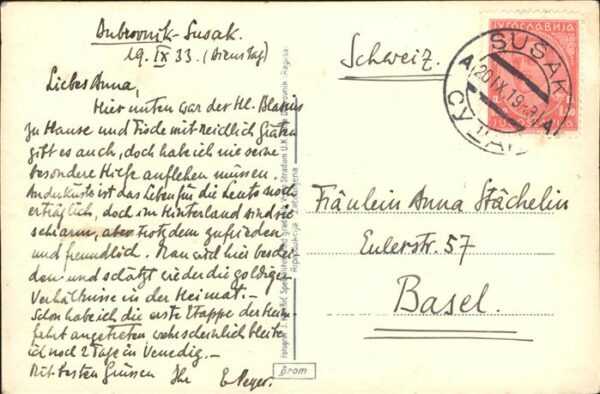 Dubrovnik-Sušak.
19. IX 33. (Dienstag)
Liebes Anna,
Hier unten war der Hl. Blasius
zu Hause und Fische mit reidlich Gräten
gibt es auch, doch habe ich nie seine
besondere Hilfe anflehen müssen.
An der Küste ist das Leben für die Leute noch
erträglich, doch im Hinterland sind sie
sehr arm, aber trotzdem zufrieden
und freundlich. Man wird hier beschei-
den und schätzt wieder die goldigen
Verhältnisse in der Heimat.-
Schon habe ich die erste Etappe der Heim-
fahrt angetreten wahrscheinlich bleibe
ich noch 2 Tage in Venedig.-
Mit besten Grüssen Ihr E. Meyer.
Schweiz.
ЈУГОСЛАВИЈА
SUŠAK
20.IX.19
Fräulein Anna Stächelin
Eulerstr. 57
Basel.
Brom